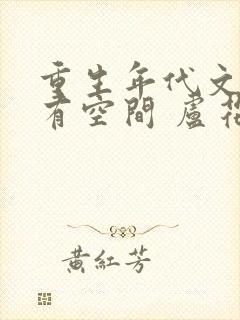 重生年代文
有空間 盧花
黃紅芳